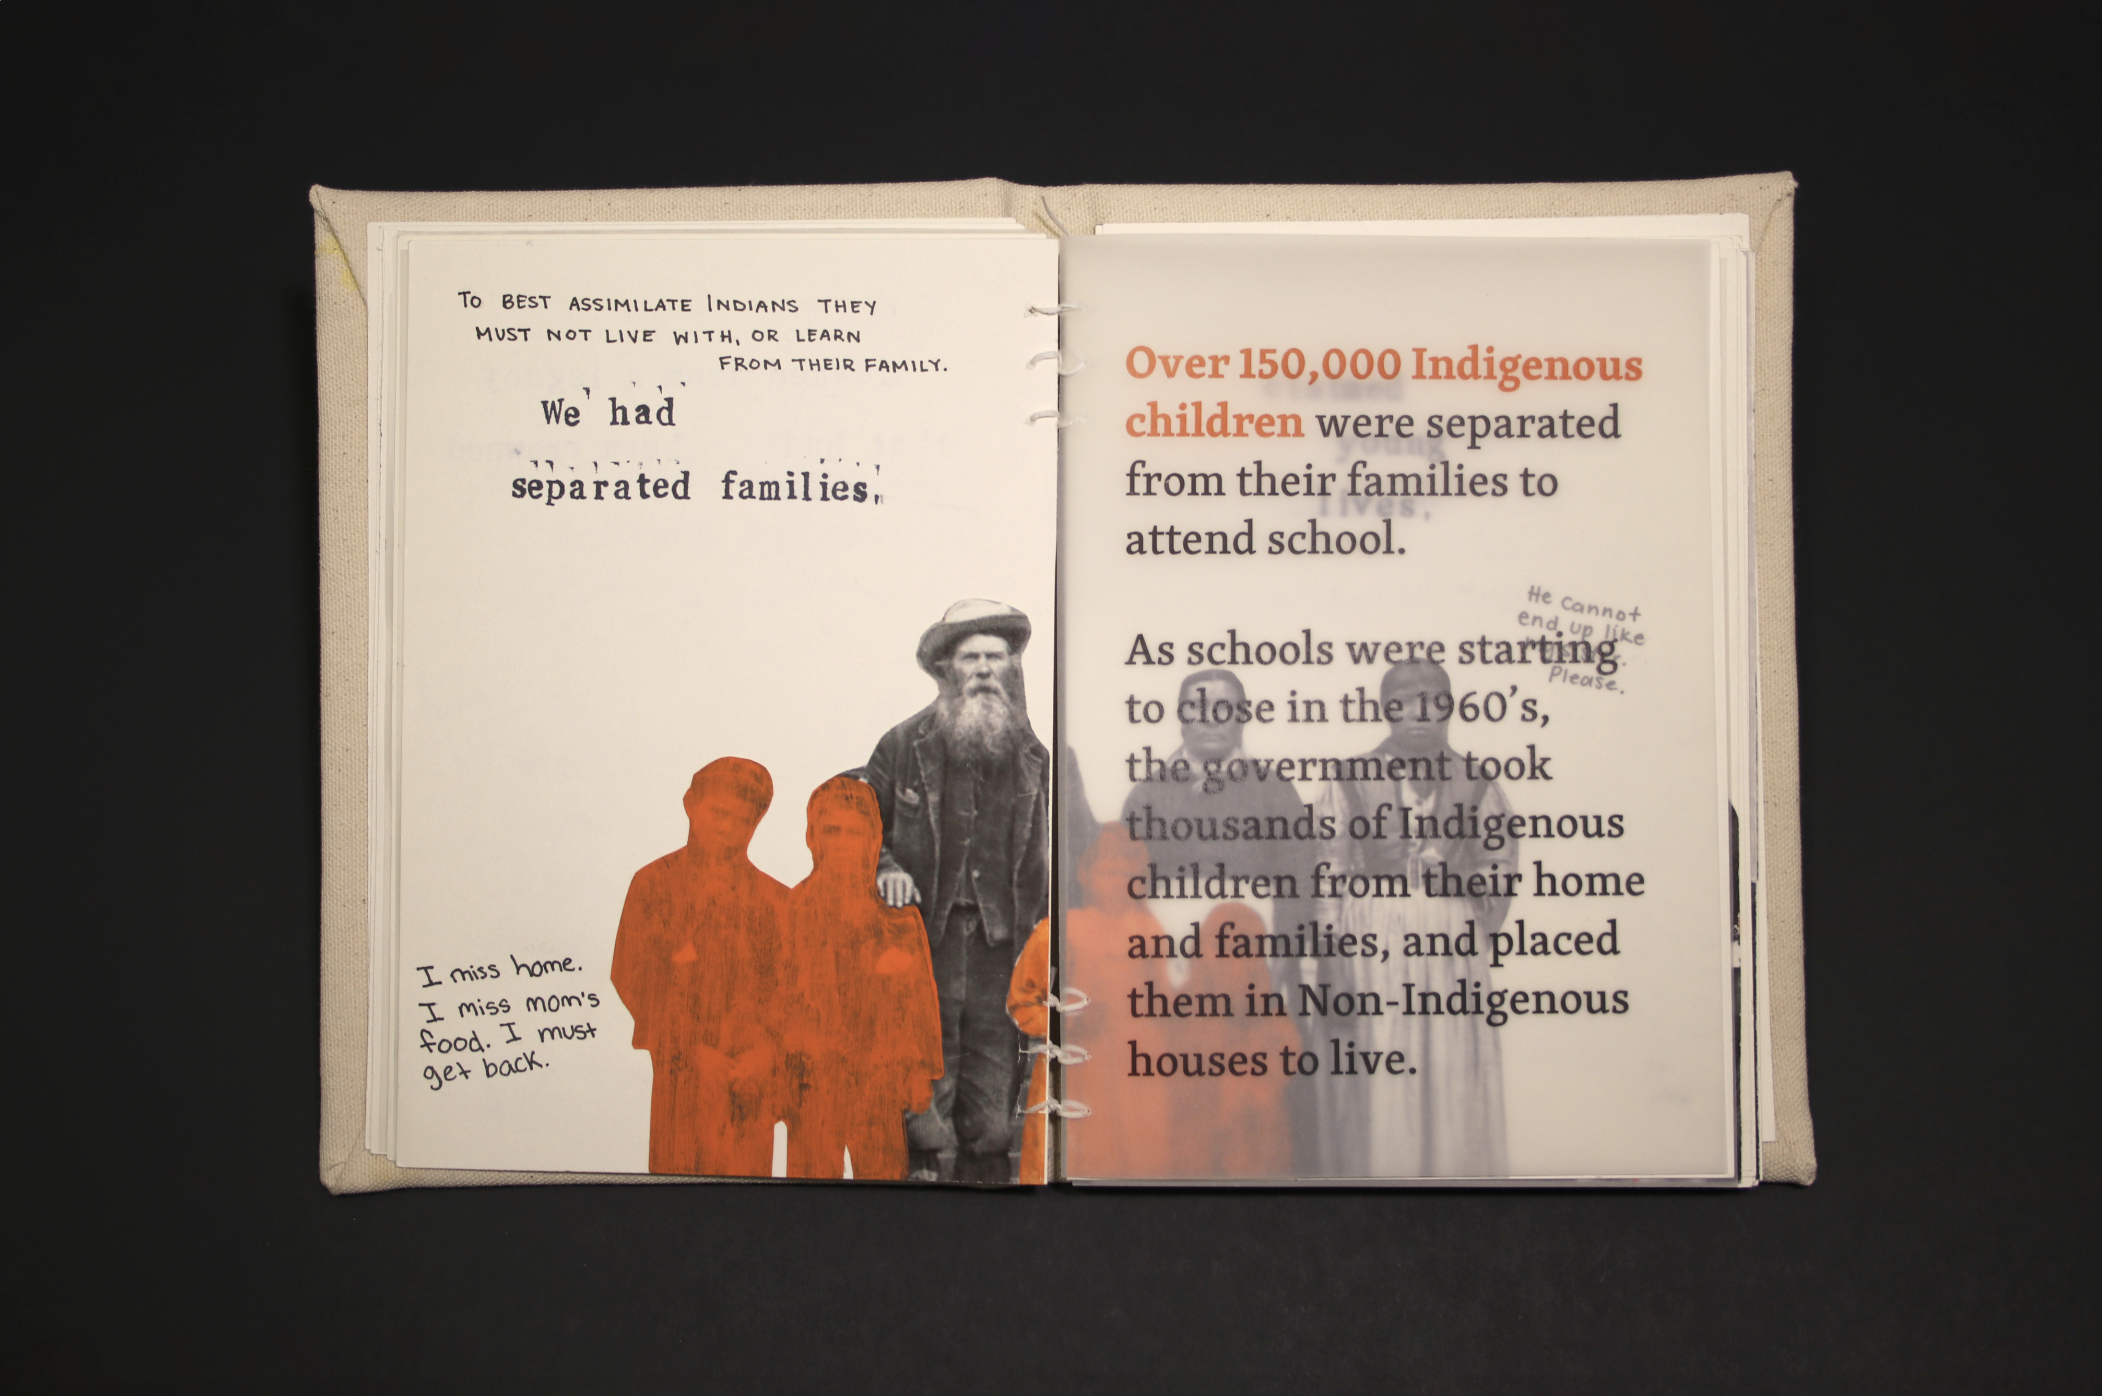 To BEST ASSIMILATE INDIANS THEY
MUST NOT LIVE WITH, OR LEARN
FROM THEIR FAMILY.
We had
separated families,
I miss home.
I miss mom's
food. I must
get back.
Over 150,000 Indigenous
children were separated
from their families to
attend school.
young
lives,
He cannot
end up like
Please.
As schools were starting
to close in the 1960's,
the government took
thousands of Indigenous
children from their home
and families, and placed
them in Non-Indigenous
houses to live.